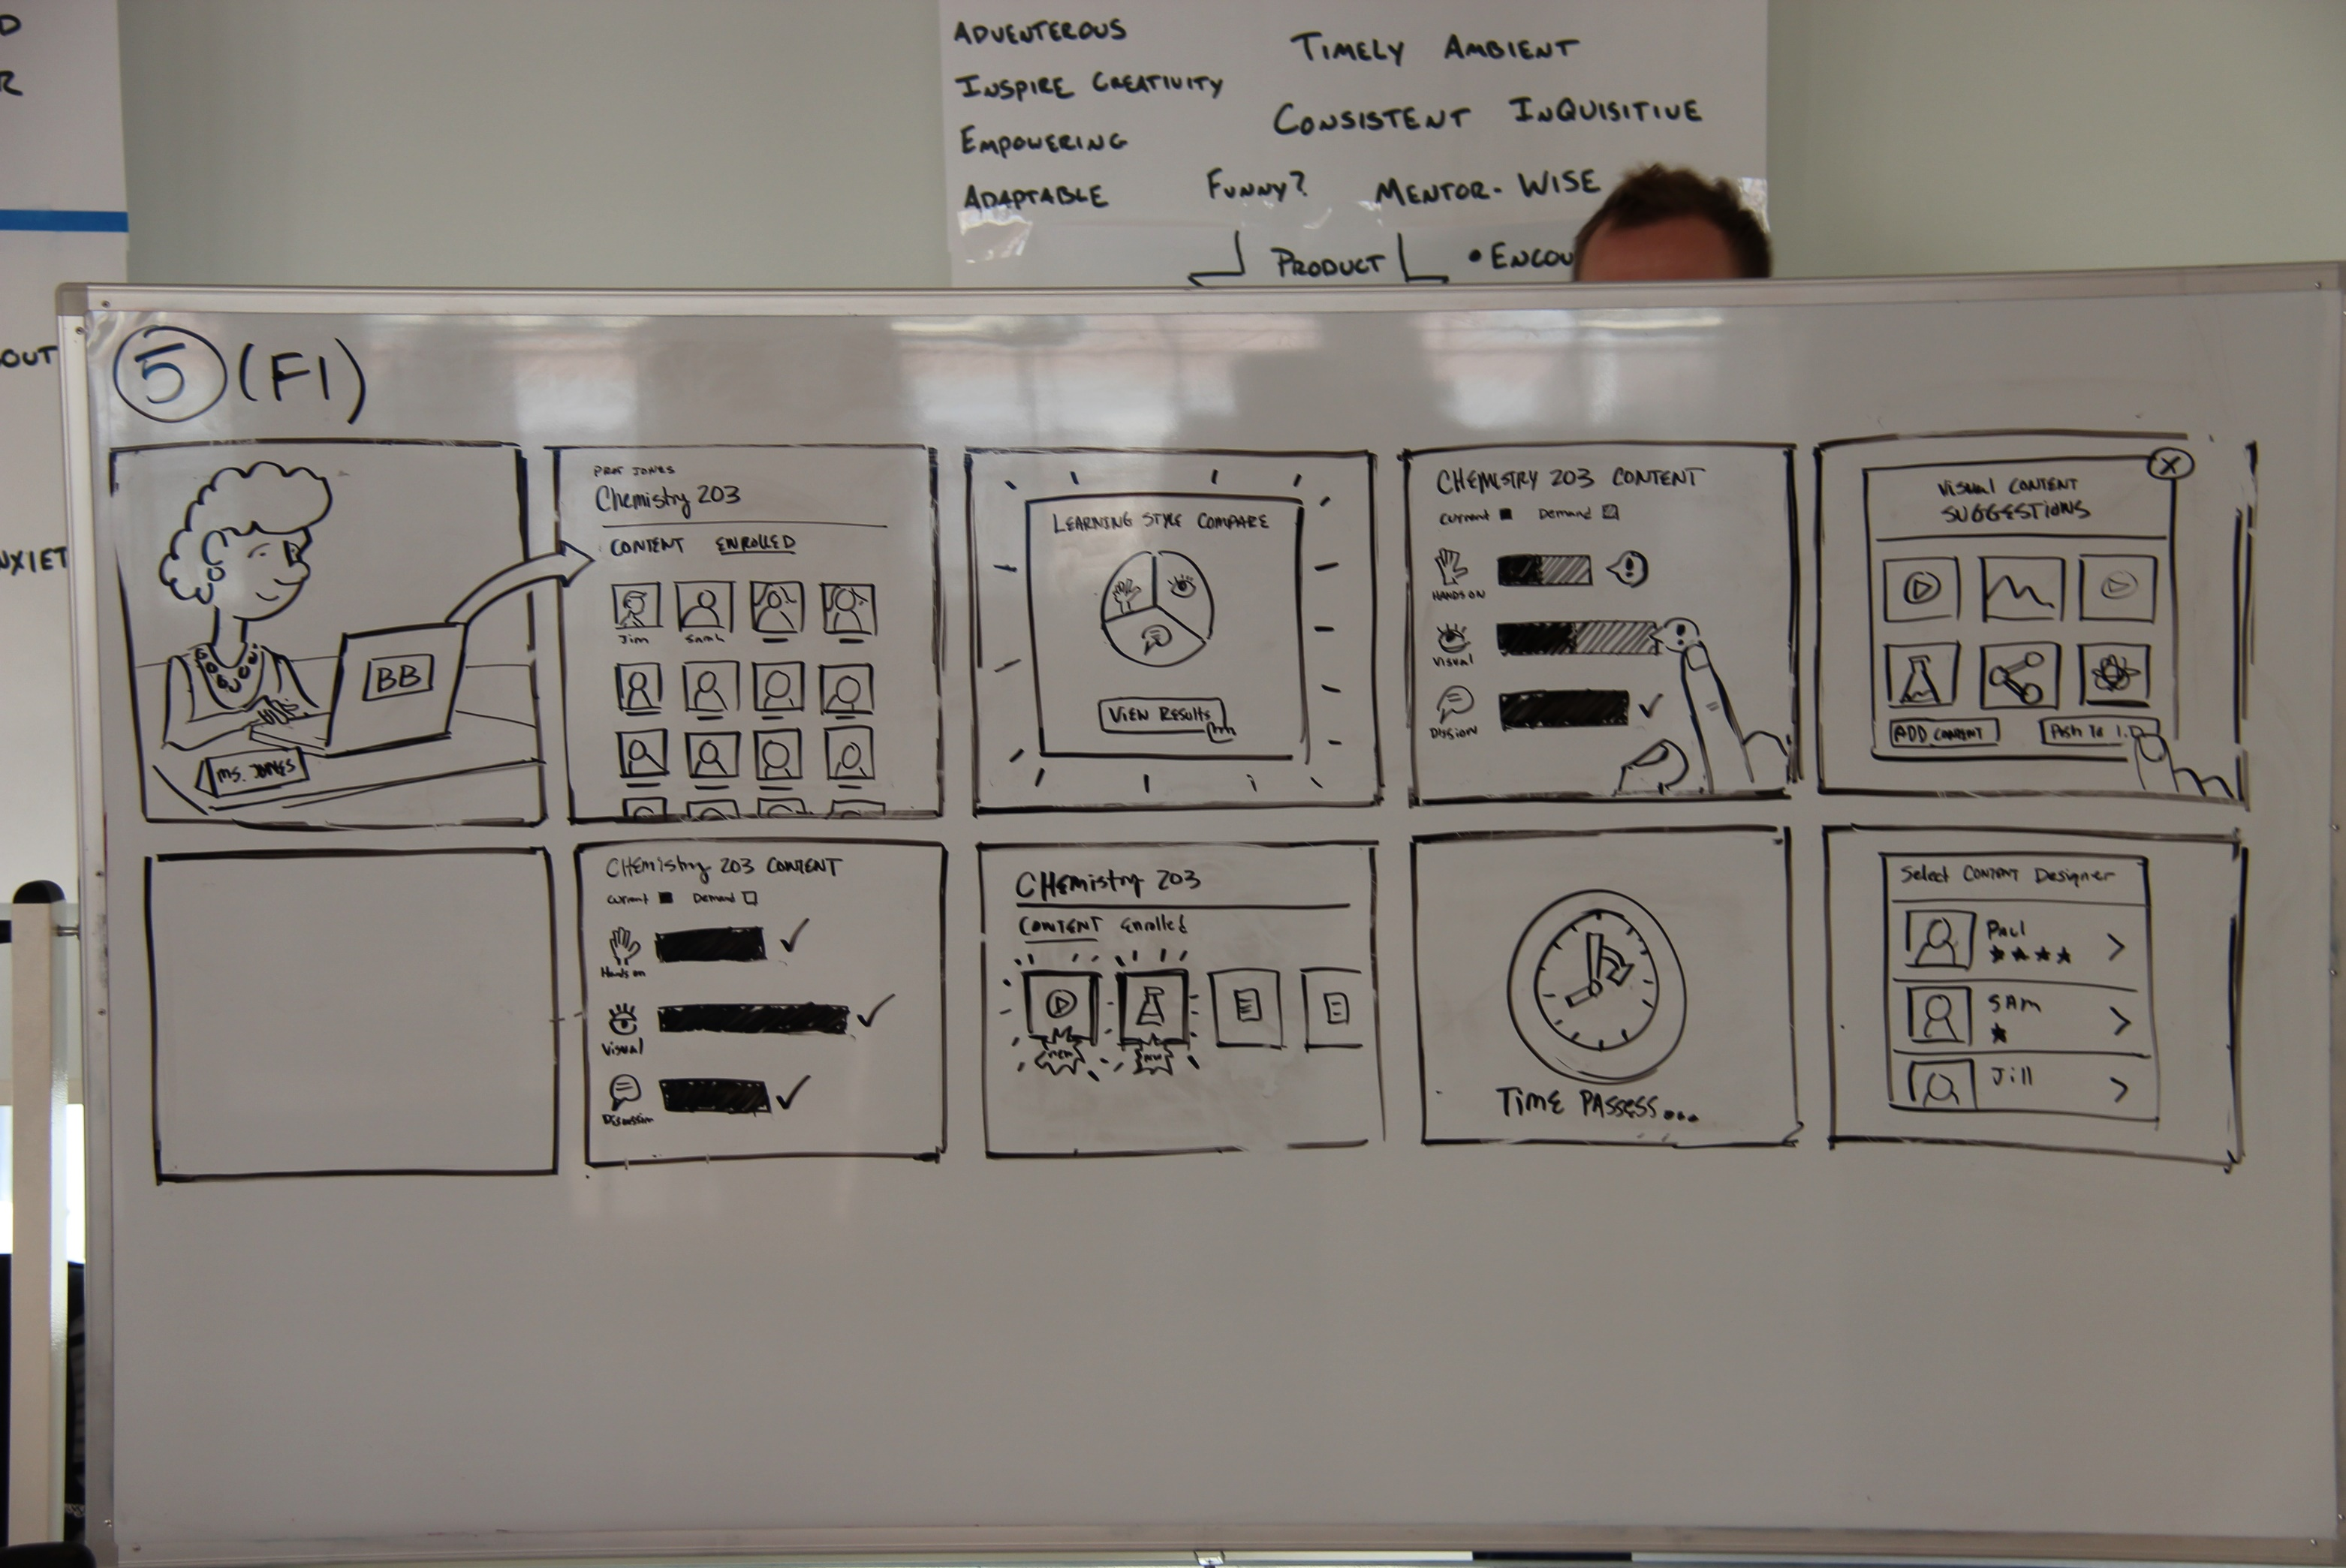 D
R
OUT
NXIET
ADVENTEROUS
INSPIRE CREATIVITY
EMPOWERING
ADAPTABLE
TIMELY AMBIENT
CONSISTENT INQUISITIVE
FUNNY? MENTOR-WISE
PRODUCT
• ENCOU
5 (F1)
BB
MS. JONES
PROF JONES
Chemistry 203
CONTENT ENROLLED
Jim Sarah
LEARNING STYLE COMPARE
VIEW RESULTS
CHEMISTRY 203 CONTENT
Current Demand
HANDS ON
Visual
DISSION
Visual CONTENT
SUGGESTIONS
ADD CONTENT
Push To I.D
CHEMistry 203 CONTENT
Current Demand
Hands on
Visual
Discussion
CHEMistry 203
CONTENT Enrolled
NEW NEW
TIME PASSESS...
Select CONTENT Designer
PAUL
SAM
Jill